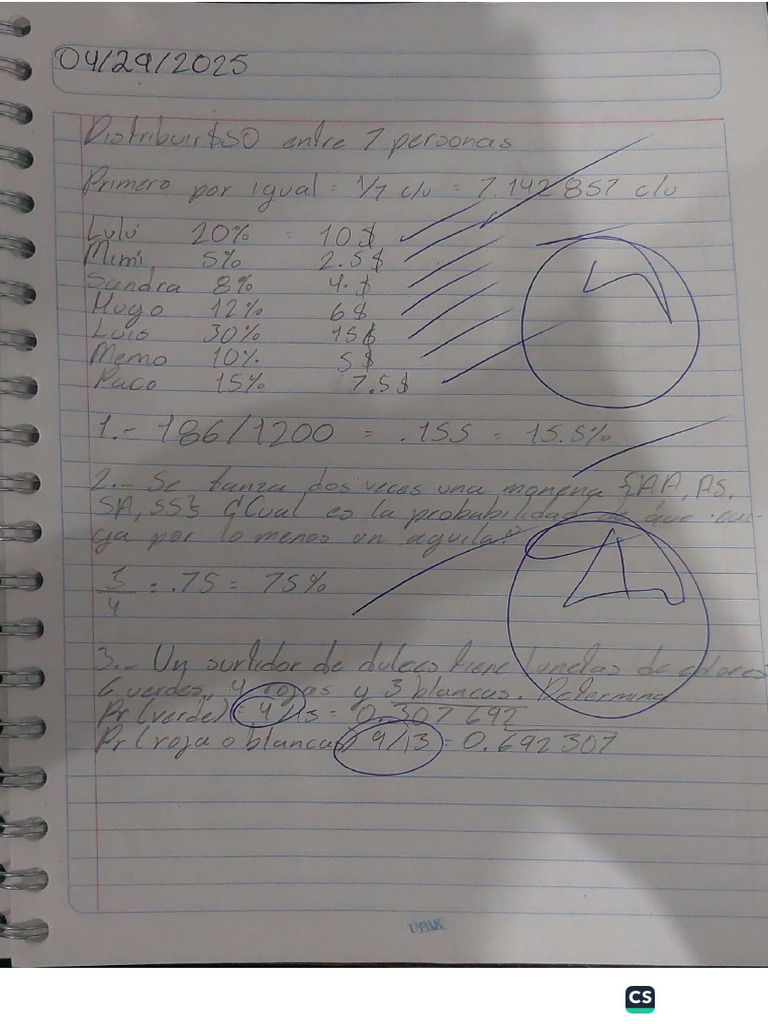 04/29/2025
Distribuir $50 entre 7 personas
Primero por igual = 1/7 c/u = 7.142857 c/u
Lulú 20% = 10$
Mimi 5% 2.5$
Sandra 8% 4.$
Hugo 12% 6$
Luis 30% 15$
Memo 10% 5$
Paco 15% 7.5$
1.- 186/1200 = .155 = 15.5%
2.- Se lanza dos veces una monena {AA, AS,
SA, SS} ¿Cual es la probabilidad de que cai-
ga por lo menos un aguila?
3/4 = .75 = 75%
3.- Un surtidor de dulces tiene lunetas de colores
6 verdes, 4 rojas y 3 blancas. Determina
Pr(verde) = 4/13 = 0.307692
Pr(roja o blancas) 9/13 = 0.692307
UPAK
CS